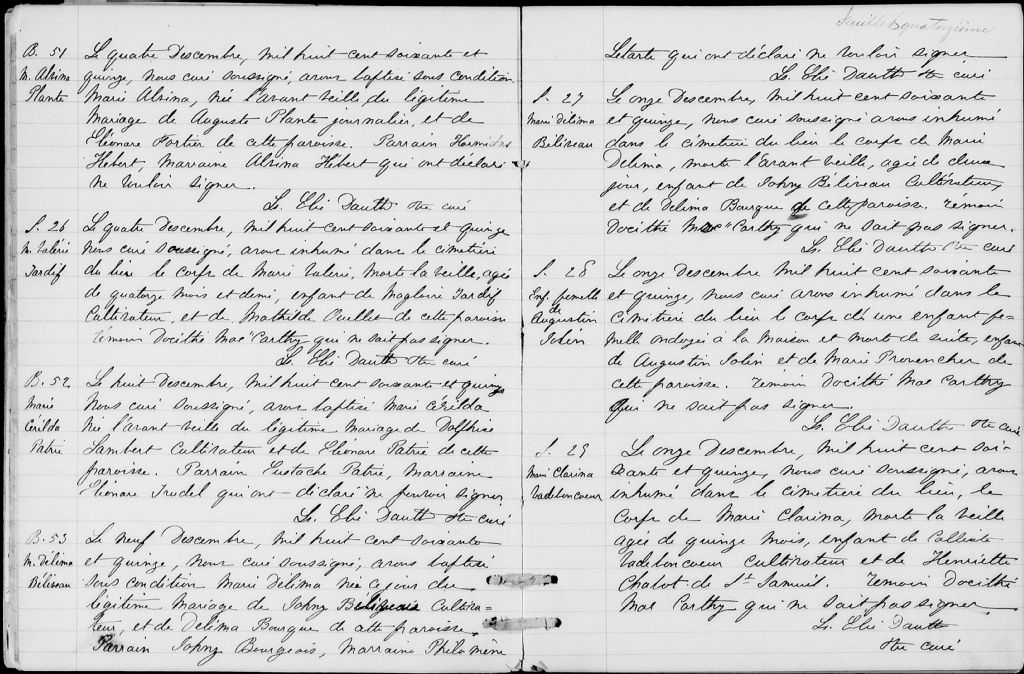 B. 51
M. Alvina
Plante
Le quatre Descembre, mil huit cent soixante et
quinze, nous curé soussigné, avons baptisé sous condition
Marie Alvina, née l'avant veille, du légitime
Mariage de Auguste Plante journalier, et de
Eléonare Portier de cette paroisse. Parrain Hormidas
Hébert, Marraine Alvina Hébert qui ont déclaré
ne vouloir signer.
Ls. Elie Dauth Ptre curé
S. 26
M. Valérie
Tardif
Le quatre Descembre, mil huit cent soixante et quinze
nous curé soussigné, avons inhumé dans le cimetiere
du lieu le corps de Marie Valéri, morte la veille, agée
de quatorze mois et demi, enfant de Magloire Tardif
Cultivateur, et de Mathilde Ouellet de cette paroisse
Temoin Docithé Mac Carthy qui ne sait pas signer.
Ls. Elie Dauth Ptre curé
B. 52
Marie
Cérilda
Patrie
Le huit Descembre, mil huit cent soixante et quinze
Nous curé soussigné, avons baptisé Marie Cérilda
née l'avant veille du légitime mariage de Dolphice
Lambert Cultivateur et de Eléonare Patrie de cette
paroisse. Parrain Eustache Patrie, Marraine
Eléonare Trudel qui ont déclaré ne pouvoir signer
Ls. Elie Dauth Ptre curé
B. 53
M. Délima
Béliveau
Le neuf Descembre, mil huit cent soixante
et quinze, nous curé soussigné, avons baptisé
sous condition Marie Délima née ce jour du
légitime Mariage de Johny Béliveau Cultiva-
teur, et de Délima Bourque de cette paroisse.
Parrain Johny Bourgeois, Marraine Philomène
Feuille quatorzième
Letarte qui ont déclaré ne vouloir signer
Ls. Elie Dauth Ptre curé
S. 27
Marie Délima
Béliveau
Le onze Descembre, mil huit cent soixante
et quinze, nous curé soussigné avons inhumé
dans le cimetiere du lieu le corps de Marie
Delima, morte l'avant veille, agée de deux
jours, enfant de Johny Béliveau Cultivateur,
et de Delima Bourque de cette paroisse. Temoin
Docithé Mac Carthy qui ne sait pas signer.
Ls. Elie Dauth Ptre curé
S. 28
Enf. femelle
de
Augustin
Solin
Le onze Descembre mil huit cent soixante
et quinze, nous curé avons inhumé dans le
cimetiere du lieu le corps d'une enfant fe-
melle ondoyée à la maison et mort de suite, enfant
de Augustin Solin et de Marie Provencher de
cette paroisse. Temoin Docithé Mac Carthy
qui ne sait pas signer.
Ls. Elie Dauth Ptre curé
S. 29
Marie Clarina
Vadeboncoeur
Le onze Descembre, mil huit cent soi-
xante et quinze, nous curé soussigné, avons
inhumé dans le cimetiere du lieu, le
corps de Marie Clarina, morte la veille
agée de quinze mois, enfant de Calixte
Vadeboncoeur cultivateur et de Henriette
Chabot de St. Samuel. Temoin Docithé
Mac Carthy qui ne sait pas signer
Ls. Elie Dauth
Ptre curé